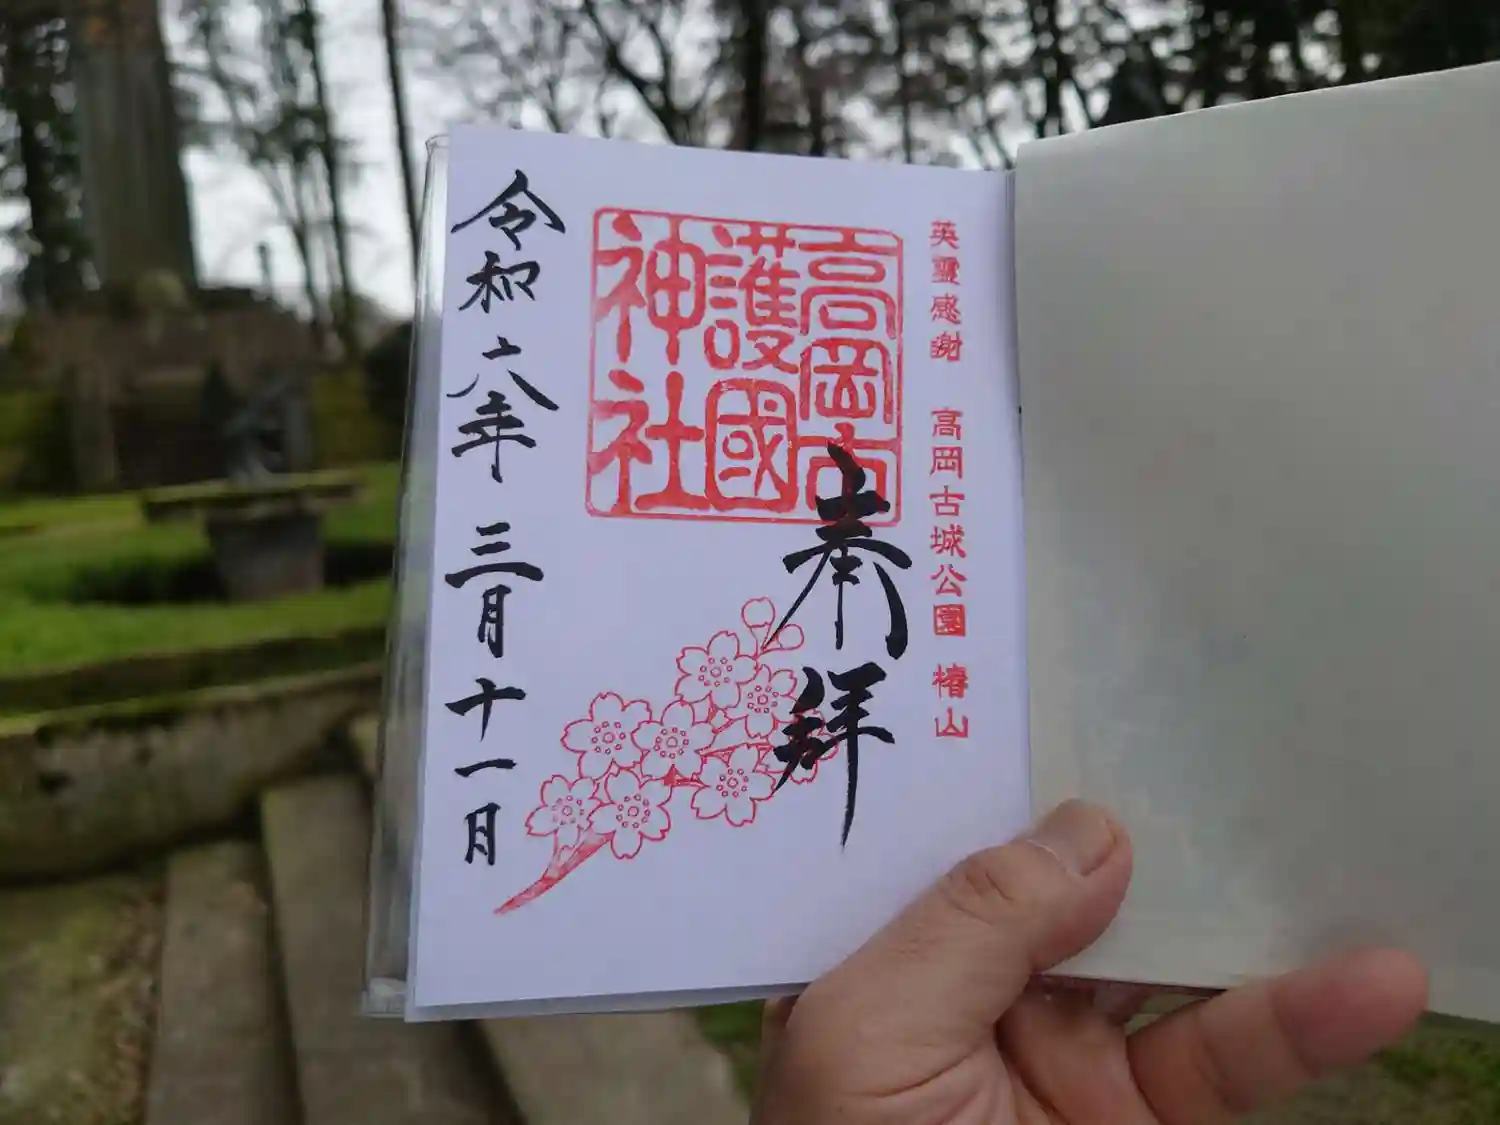 英霊感謝 高岡古城公園 椿山
奉拝
高岡市
護國
神社
令和六年 三月十一日